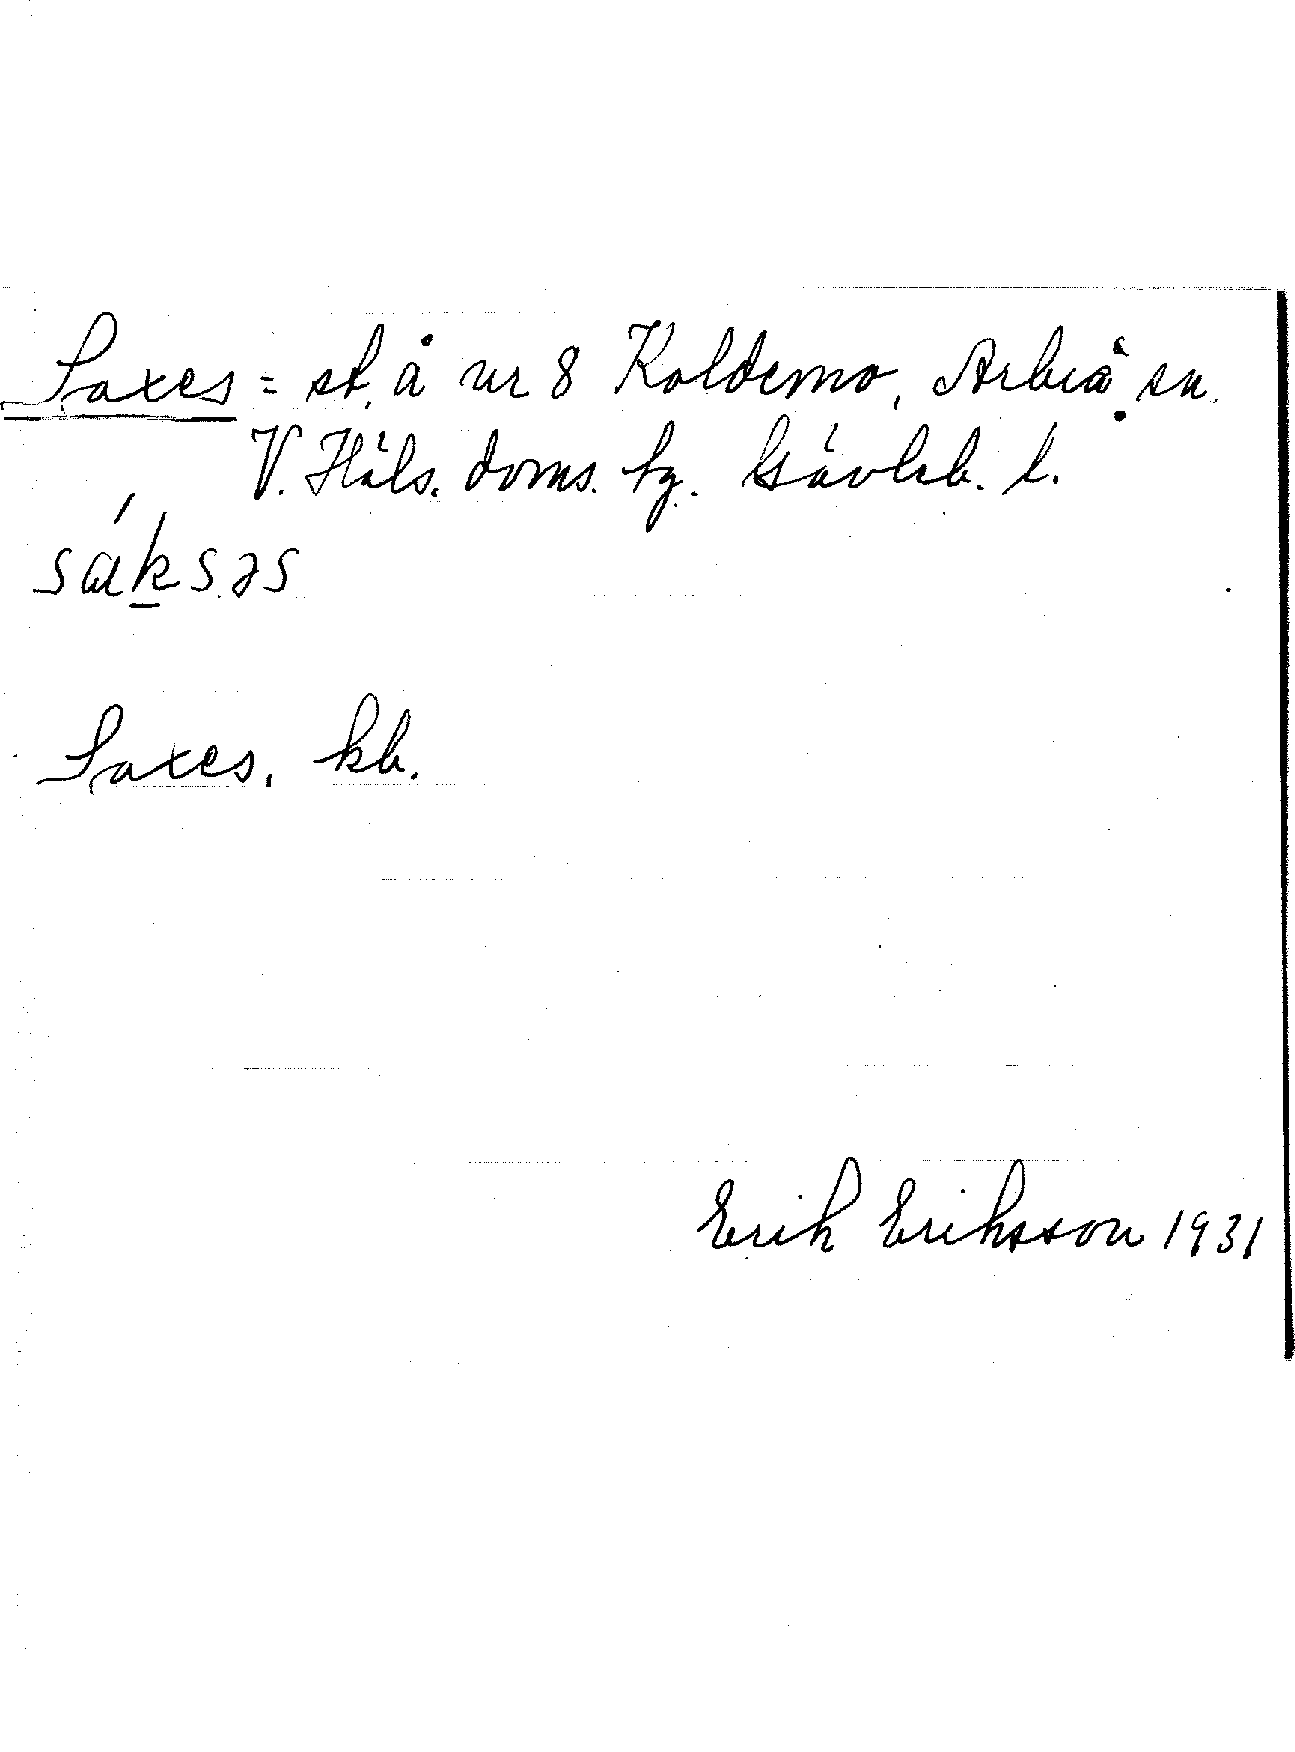 Saxes = st. å nr 8 Koldemo, Arbrå sn.
V. Häls. doms. tg. Gävleb. l.
sáksəs
Saxes. kb.
Erik Eriksson 1931